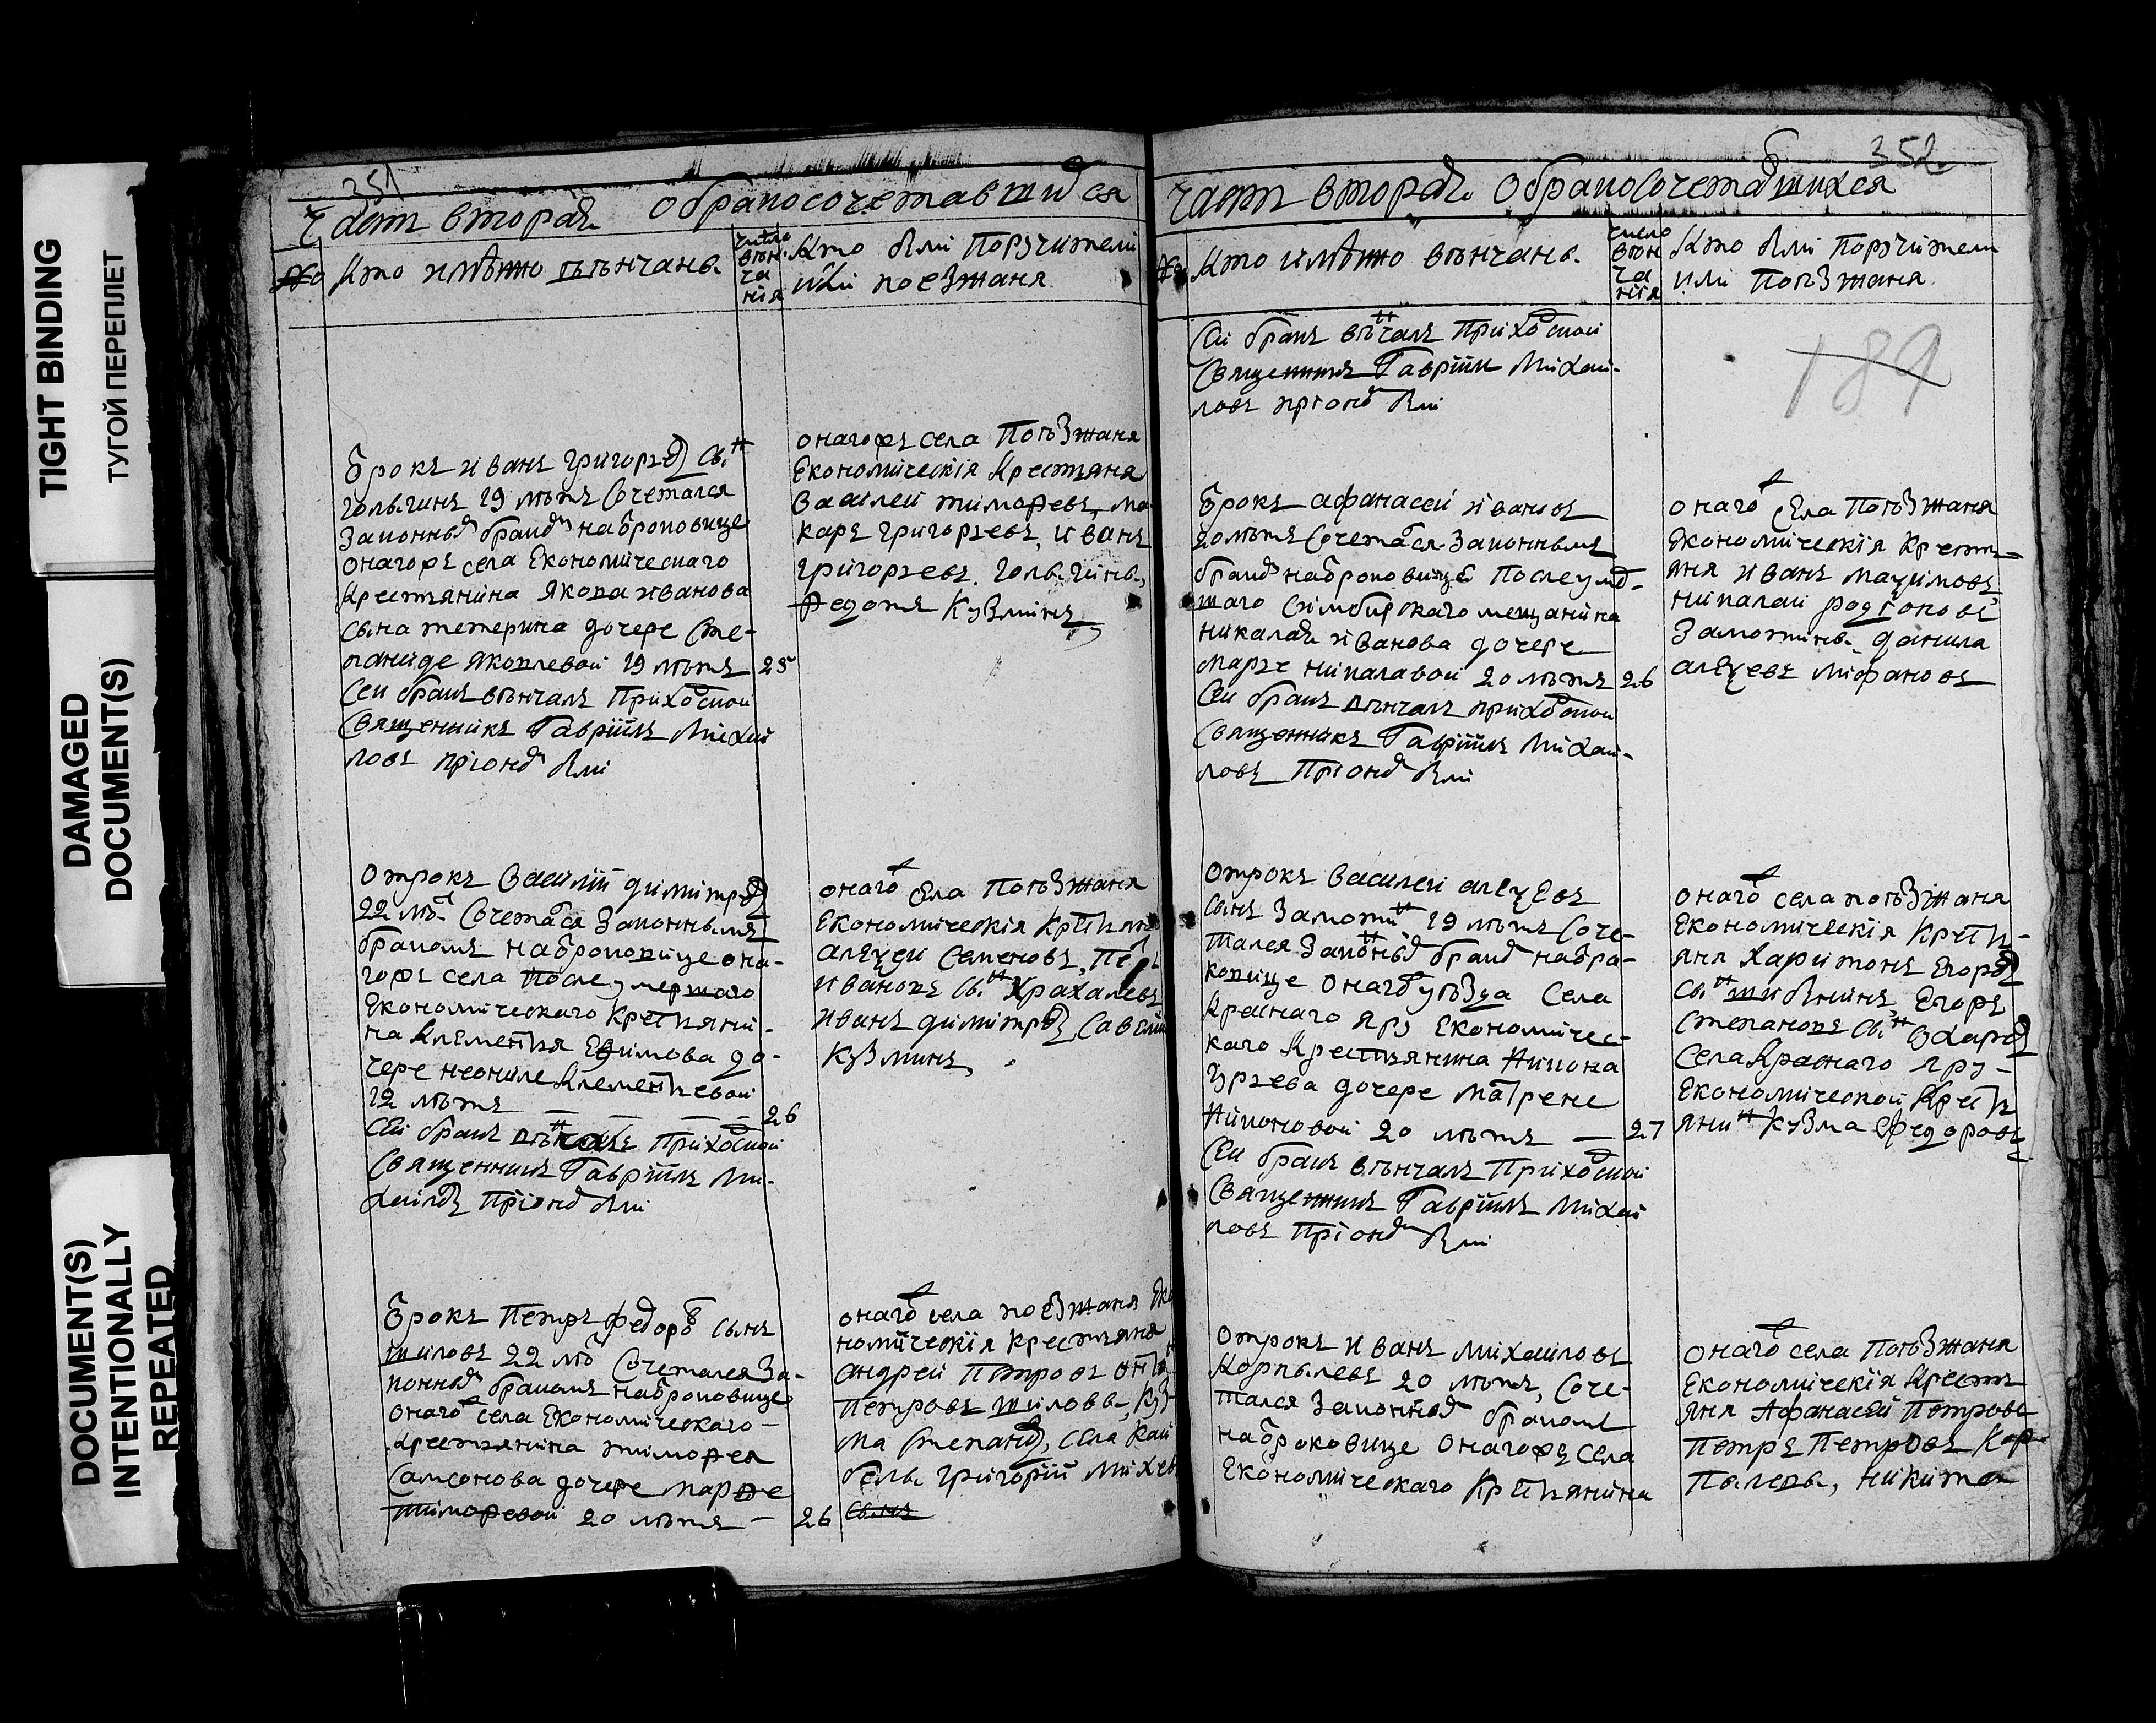 TIGHT BINDING
ТУГОЙ ПЕРЕПЛЕТ
DAMAGED
DOCUMENT(S)
DOCUMENT(S)
INTENTIONALLY
REPEATED
351
часть вторая о бракосочетавшихся
№ Кто имѣнно вѣнчаны
число
вѣн-
ча
нія
Кто были Поручители
или поезжаня
отрокъ иванъ григорьев сын
голыгинъ 19 лѣтъ Сочетался
Законным браком наотроковице
онагожъ села Економическаго
Крестьянина якова иванова
сына тетерина дочере Сте-
паниде яковлевой 19 лѣтъ 25
Сей бракъ вѣнчалъ Приходской
Священникъ Гавріилъ Михаи
ловъ при оном были
онагожъ села Поѣзжаня
Економическія Крестьяня
Василей тимофеевъ, ма-
каръ григорьевъ, иванъ
григорьевъ голыгины,
Федотъ Кузминъ
Отрокъ Василій димитрев
22 лѣт Сочетался Законнымъ
бракомъ на отроковице она-
гожъ села После умершаго
Економическаго Крестьяни-
на Клементья Ефимова до-
чере неониле Клементьевой
19 лѣтъ 26
Сей бракъ вѣнчалъ Приходской
Священникъ Гавріилъ Ми-
хаилов при оном были
онаго Села Поѣзжаня
Економическія Крестьяня
алеѯей Семеновъ, Петръ
ивановъ сын Храхалевъ
иванъ димитрев, Савелий
Кузминъ,
отрокъ Петръ федоров сынъ
шиловъ 22 лѣт Сочетался За-
конным бракомъ наотроковице
онаго села Економическаго
Крестьянина тимофея
Самсонова дочере марфе
тимофеевой 20 лѣтъ 26
онаго села поѣзжаня Еко
номическія Крестьяня
андрей Петровъ
Петровъ шиловы, Куз-
ма Степанов, села Кай
белы григорій михев
сынъ
352
часть вторая о бракосочетавшихся
Кто имѣнно вѣнчаны
число
вѣн
ча
нія
Кто были Поручители
или Поѣзжаня
189
Сей бракъ вѣнчалъ Приходской
Священникъ Гавріилъ Михаи-
ловъ при оном были
отрокъ афанасей ивановъ
20 лѣтъ Сочетался Законнымъ
браком наотроковице После умер-
шаго Симбирскаго мещанина
николая иванова дочере
марье николавой 20 лѣтъ 26
Сей бракъ вѣнчалъ приходской
Священникъ Гавріилъ Михаи-
ловъ При оном были
онаго Села Поѣзжаня
Економическія Крестья-
яня иванъ маѯимовъ
николай родіоновъ
Замотины, данила
алеѯевъ мифановъ
отрокъ Василей алеѯеевъ
сынъ Замотин 19 лѣтъ Соче-
тался Законным браком на отро-
ковице онаго уѣзда Села
Краснаго яру Економичес-
каго Крестьянина Никона
Гурьева дочере Матрене
Никоновой 20 лѣтъ 27
Сей бракъ вѣнчалъ Приходской
Священникъ Гавріилъ Михаи
ловъ При оном были
онаго села поѣзжаня
Економическія Крестья-
яня Харитонъ Егоров
сын Егоръ
Степановъ сын Захаров
Села Краснаго яру
Економической Кресть
янин Кузма Федоровъ
Отрокъ иванъ михаиловъ
Корпылевъ 20 лѣтъ, Соче-
тался Законным бракомъ
наотроковице онагожъ села
Економическаго Крестьянина
онаго села Поѣзжаня
Економическія Кресть
яня Афанасей Петровъ
Петръ Петровъ Кор-
пылевы, никита